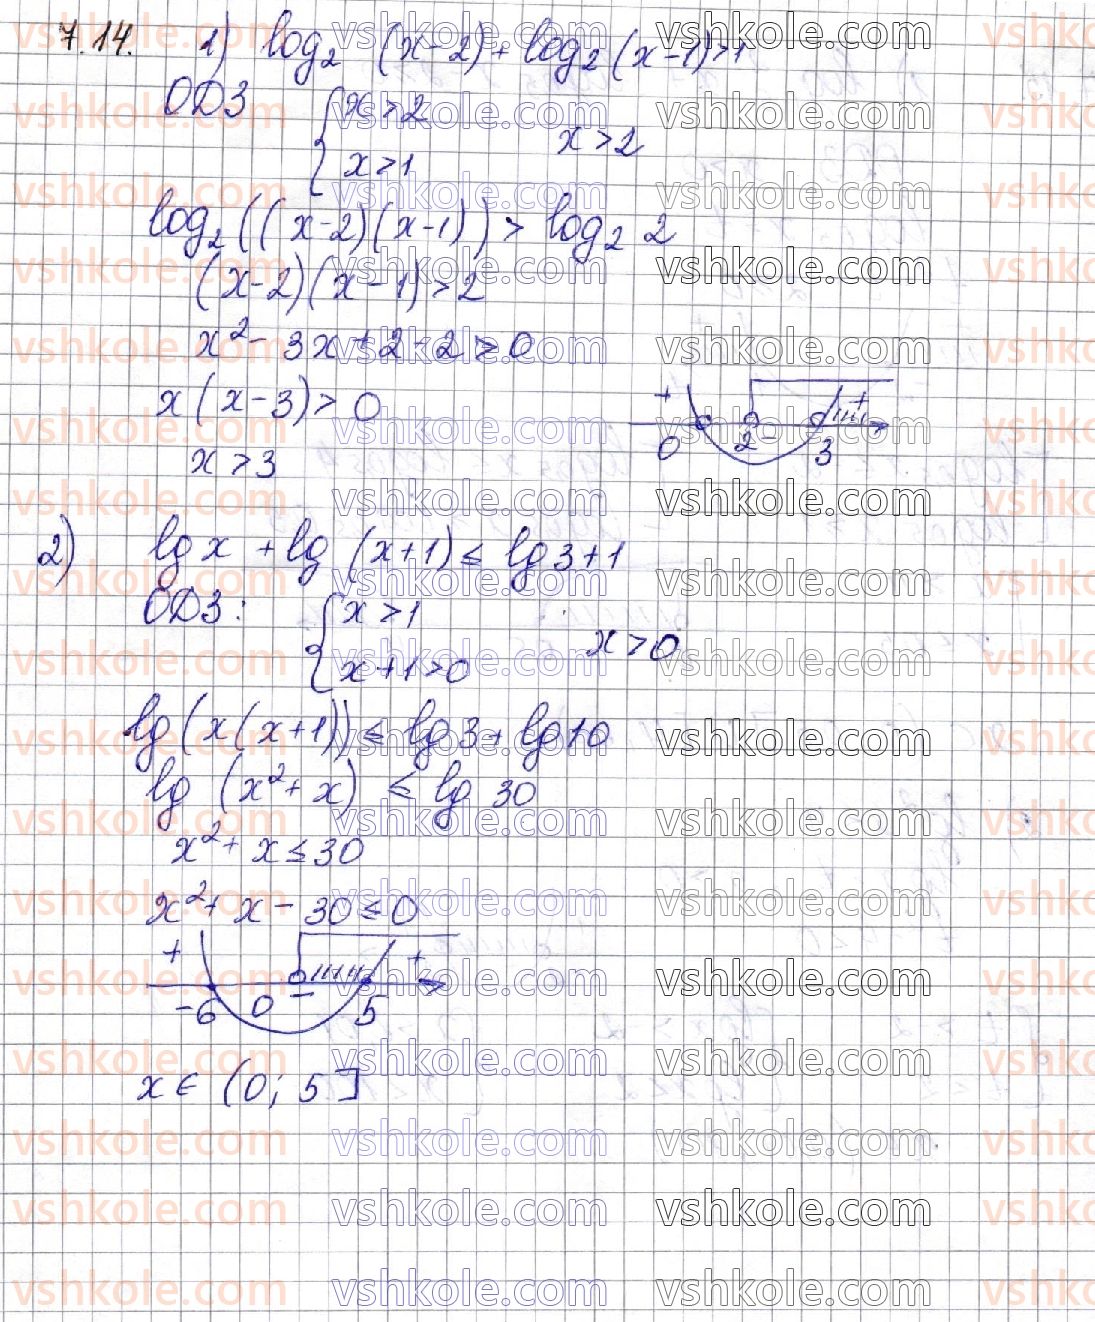 7.14. 1) log₂ (x-2) + log₂ (x-1) > 1
ОДЗ { x > 2
x > 1
x > 2
log₂ ((x-2)(x-1)) > log₂ 2
(x-2)(x-1) > 2
x² - 3x + 2 - 2 > 0
x(x-3) > 0
+ 0 2 - 3 +
x > 3
2) lg x + lg (x+1) ≤ lg 3 + 1
ОДЗ: { x > 1
x + 1 > 0
x > 0
lg (x(x+1)) ≤ lg 3 + lg 10
lg (x² + x) ≤ lg 30
x² + x ≤ 30
x² + x - 30 ≤ 0
+ -6 0 - 5 +
x ∈ (0; 5]
vshkole.com